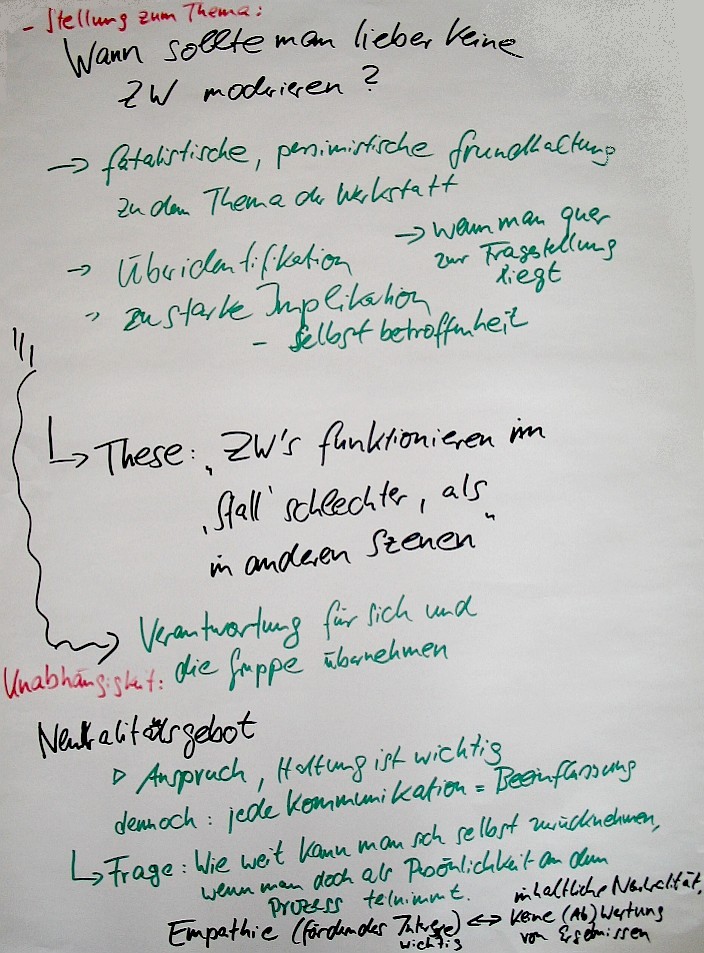 - Stellung zum Thema:
Wann sollte man lieber keine
ZW moderieren?
→ fatalistische, pessimistische Grundhaltung
zu dem Thema der Werkstatt
→ Überidentifikation
→ wenn man quer
zur Fragestellung
liegt
" zu starke Implikation
- Selbstbetroffenheit
!!!
↳ These: „ZW's funktionieren im
‚Stall' schlechter, als
in anderen Szenen"
→ Verantwortung für sich und
die Gruppe übernehmen
Unabhängigkeit:
Neutralitätsgebot
▷ Anspruch, Haltung ist wichtig
dennoch: jede Kommunikation = Beeinflussung
↳ Frage: Wie weit kann man sich selbst zurücknehmen,
wenn man doch als Persönlichkeit an dem
Prozess teilnimmt.
Empathie (förderndes ↔ inhaltliche Neutralität,
wichtig
keine (Ab)Wertung
von Ergebnissen